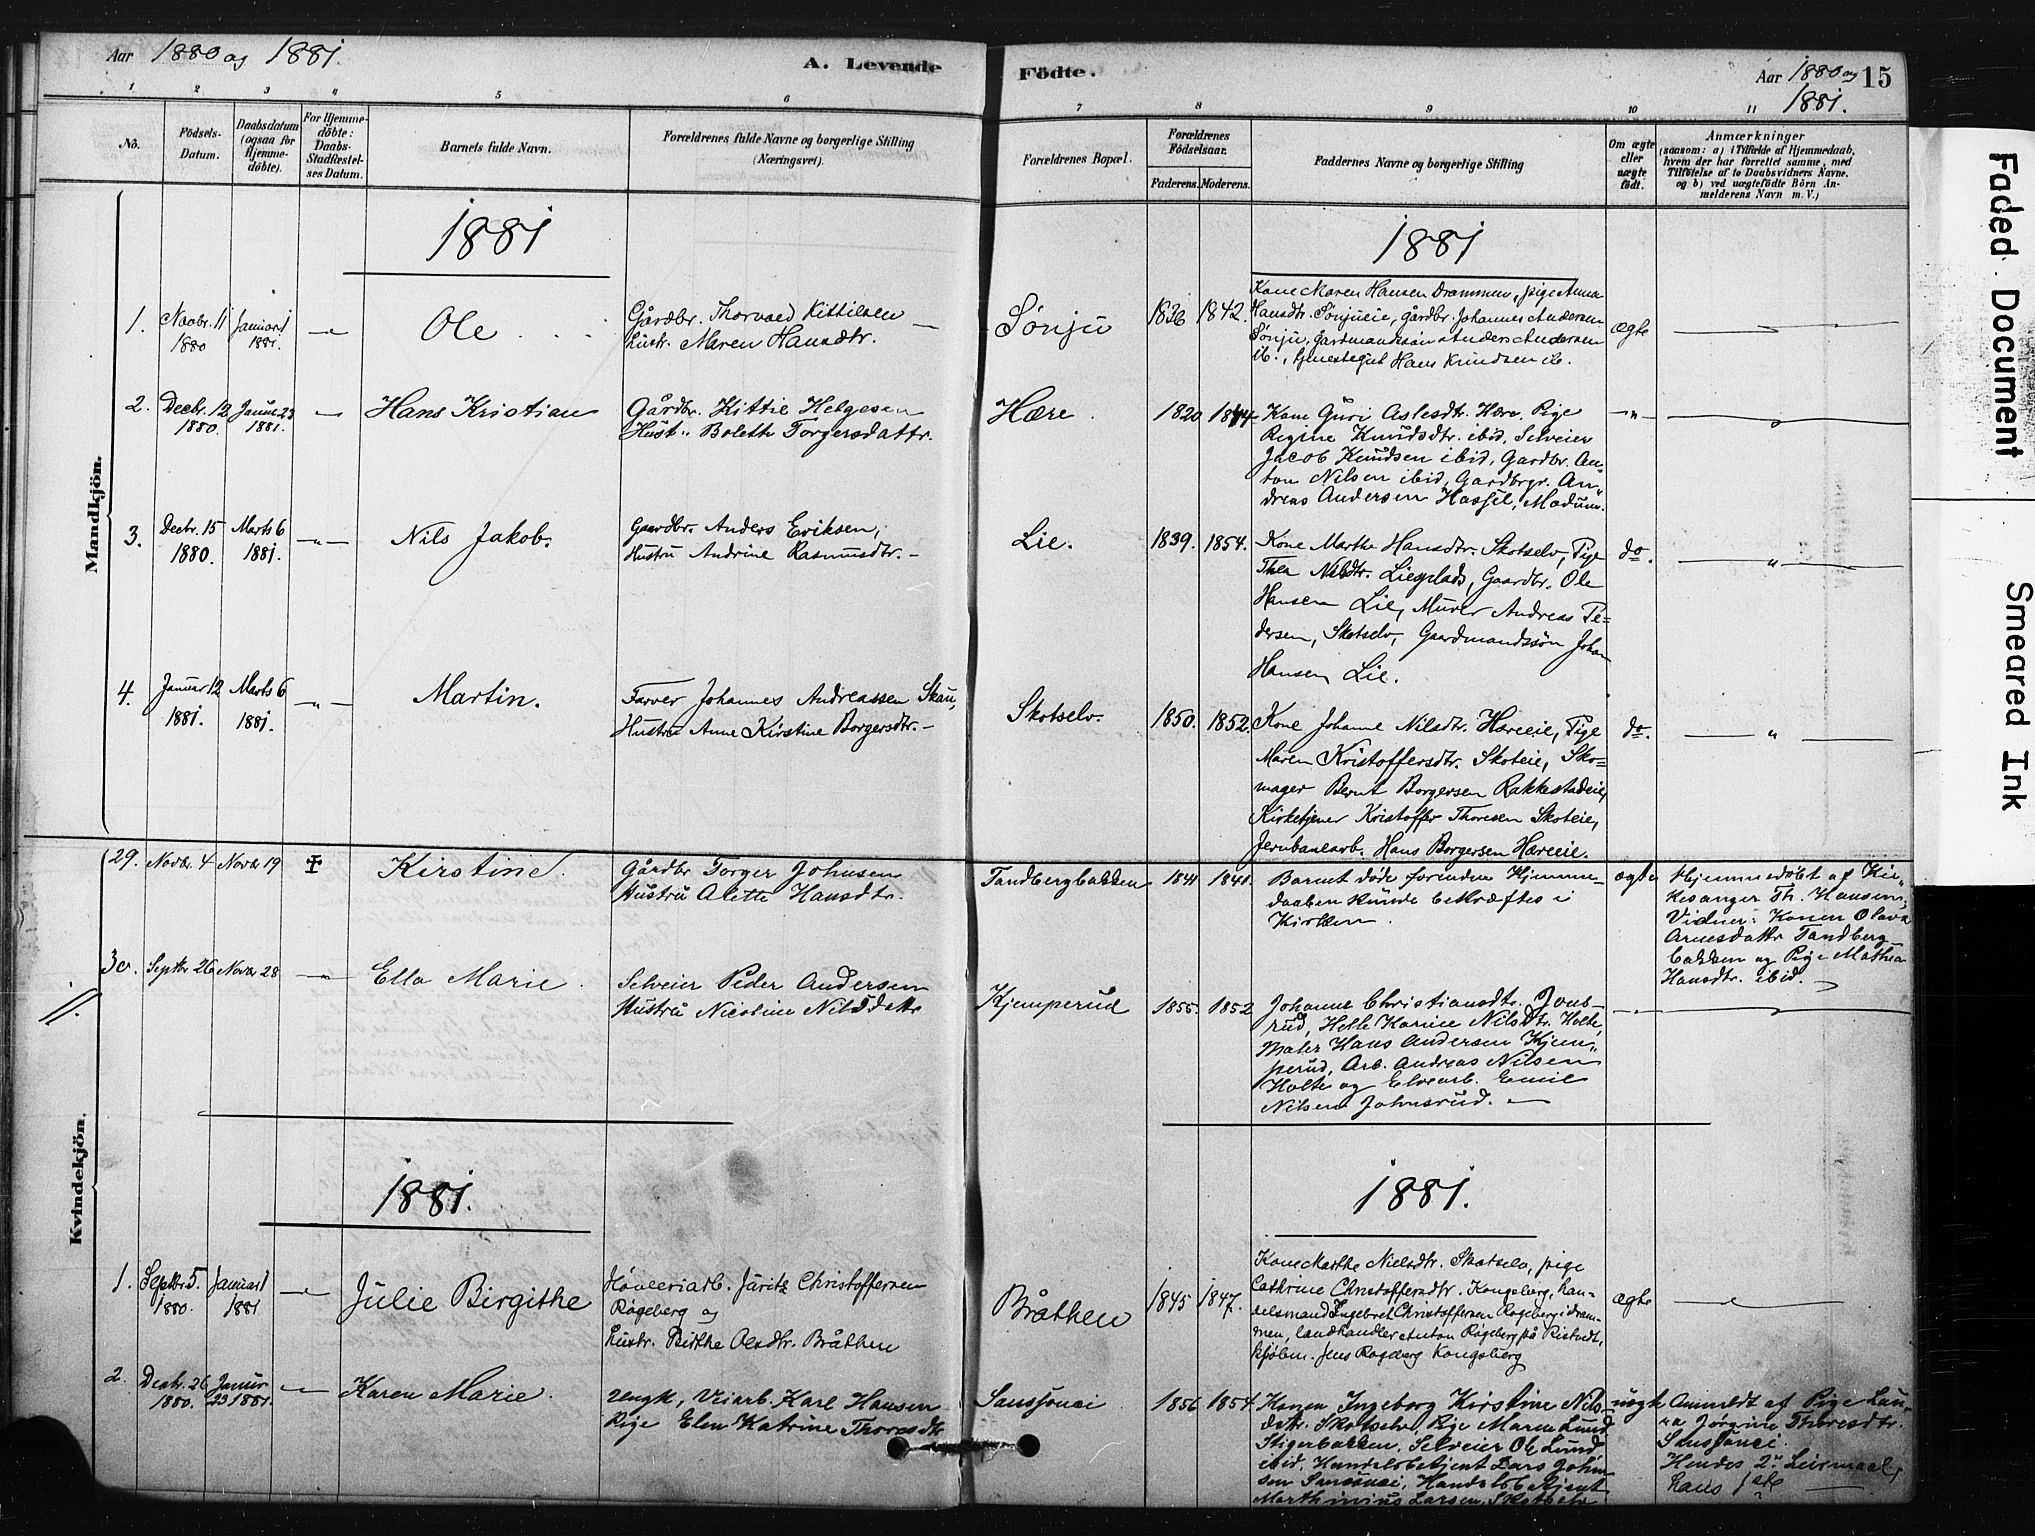 Aar 1880 og 1881.
A. Levende
Födte.
Aar 1880 og 1881.
15
1 2 3 4 5 6 7 8 9 10 11
No.
Födsels-
Datum.
Daabsdatum
(ogsaa for
Hjemme-
döbte).
For Hjemme-
döbte:
Daabs-
Stadfæstel-
ses Datum.
Barnets fulde Navn.
Forældrenes fulde Navne og borgerlige Stilling
(Næringsvei).
Forældrenes Bopæl.
Forældrenes
Födselsaar.
Faderens. Moderens.
Faddernes Navne og borgerlige Stilling
Om ægte
eller
uægte
födt.
Anmærkninger
(saasom: a) i Tilfælde af Hjemmedaab,
hvem der har forrettet samme, med
Tilföielse af to Daabsvidners Navne.
og b) ved uægtefödte Börn An-
melderens Navn m. V.)
Mandkjön.
1881
1881
1. Novbr. 11 1880
Januar 1 1881.
Ole
Gårdbr. Thorvald Kittilsen
hustr. Maren Hansdtr.
Sønju
1836 1842.
Kone Maren Hansen Drammen, pige Anna
Hansdtr. Sønjueie, gårdbr. Johannes Andersen
Sønju, gårdmandssøn Anders Andersen
ib., Hans Knudsen ib.
ægte
2. Decbr. 12 1880.
Januar 23 1881.
Hans Kristian
Gårdbr. Kittil Helgesen
Hust. Bolette Torgersdattr.
Hære.
1820 1844
Kone Guri Aslesdtr. Hære, Pige
Regine Knudsdtr. ibid, Selveier
Jacob Knudsen ibid, Gardbr. An-
ton Nilsen ibid, Gardbrgr. An-
dreas Andersen Hassel, Modum.
3. Decbr. 15 1880.
Marts 6 1881.
Nils Jakob.
Gaardbr. Anders Eriksen,
Hustru Andrine Rasmusdtr.
Lie.
1839. 1854.
Kone Marthe Hansdtr. Skotselv, Pige
Thea Nilsdtr. Lieplads, Gaardbr. Ole
Hansen Lie, Murer Andreas Pe-
dersen, Skotselv, Gaardmandssøn Johan
Hansen Lie.
do.
4. Januar 12 1881.
Marts 6 1881.
Martin.
Farver Johannes Andreassen Skau,
Hustru Anne Kirstine Borgersdtr.
Skotselv.
1850. 1852.
Kone Johanne Nilsdtr. Hæreeie, Pige
Maren Kristoffersdtr. Skoteie, Sko-
mager Bernt Borgersen Rakkestadeie,
Kirketjener Kristoffer Thoresen Skoteie,
Jernbanearb. Hans Borgersen Hæreeie.
do.
Kvindekjön.
29. Novbr. 4 Novbr. 19
Kirstine.
Gårdbr Torger Johnsen
Hustru Alette Hansdtr.
Tandbergbakken
1841 1841.
Barnet døde forinden Hjemme-
daaben kunde bekræftes i
Kirken.
ægte
Hjemmedøbt af Kir-
kesanger Th. Hansen,
Vidner: Konen Olava
Arnesdattr Tandberg-
bakken og Pige Mathea
Hansdtr. ibid.
30. Septbr 26 Novbr 28
Ella Marie.
Selveier Peder Andersen
Hustru Nicoline Nilsdattr
Kjemperud
1855. 1852
Johanne Christiansdtr. Jons-
rud, Helle Karine Nilsdtr. Holte,
Maler Hans Andersen Kjem-
perud, Arb. Andreas Nilsen
Holte og Elvearb. Emil
Nilsen Johnsrud.
11.
1881.
1881.
1. Septbr 5. 1880.
Januar 1 1881
Julie Birgithe
Høvleriarb. Jürits Christoffersen
Rogeberg og
hustr. Birthe Olsdtr. Bråthen
Bråthen
1845 1847.
Kone Marthe Nielsdtr. Skotselv, pige
Cathrine Christoffersdtr. Kongsberg, han-
delsmand Ingebret Christoffersen Rogeberg i dram-
men, landhandler Anton Rogeberg på
Jens Rogeberg Kongsberg
ægte
2. Decbr. 26 1880.
Januar 23 1881.
Karen Marie.
Ungk, Veiarb. Karl Hansen
Pige Elen Katrine Thoresdtr
Sanssouci
1856 1854
Konen Ingeborg Kirstine Nils-
dattr. Skotselv, Pige Maren Lund
Stigerbakken, Selveier Ole Lund
ibid, Handelsbetjent Lars John-
sen Sansouci, Handelsbetjent
Marthinius Larsen, Skotselv
uægte
Anmeldt af Pige Lau-
ra Jørgine Thoresdtr.
Sansouci.
Hendes 2det Leiermaal,
hans 1ste
Faded Document
Smeared Ink